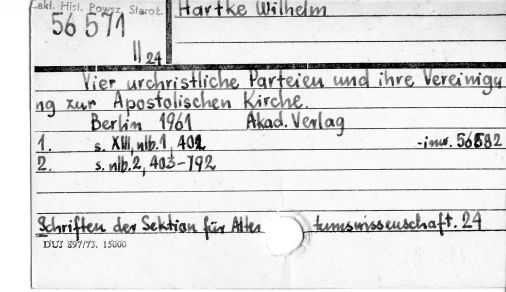 Zakł. Hist. Powsz. Staroż.
Hartke Wilhelm
56 571
II 24
Vier urchristliche Parteien und ihre Vereinigu
ng zur Apostolischen Kirche.
Berlin 1961 Akad. Verlag
1. s. XIII, nlb. 1, 402 -inw. 56582
2. s. nlb. 2, 403-792
Schriften der Sektion für Alter tumswissenschaft. 24
DUJ 897/73. 15000